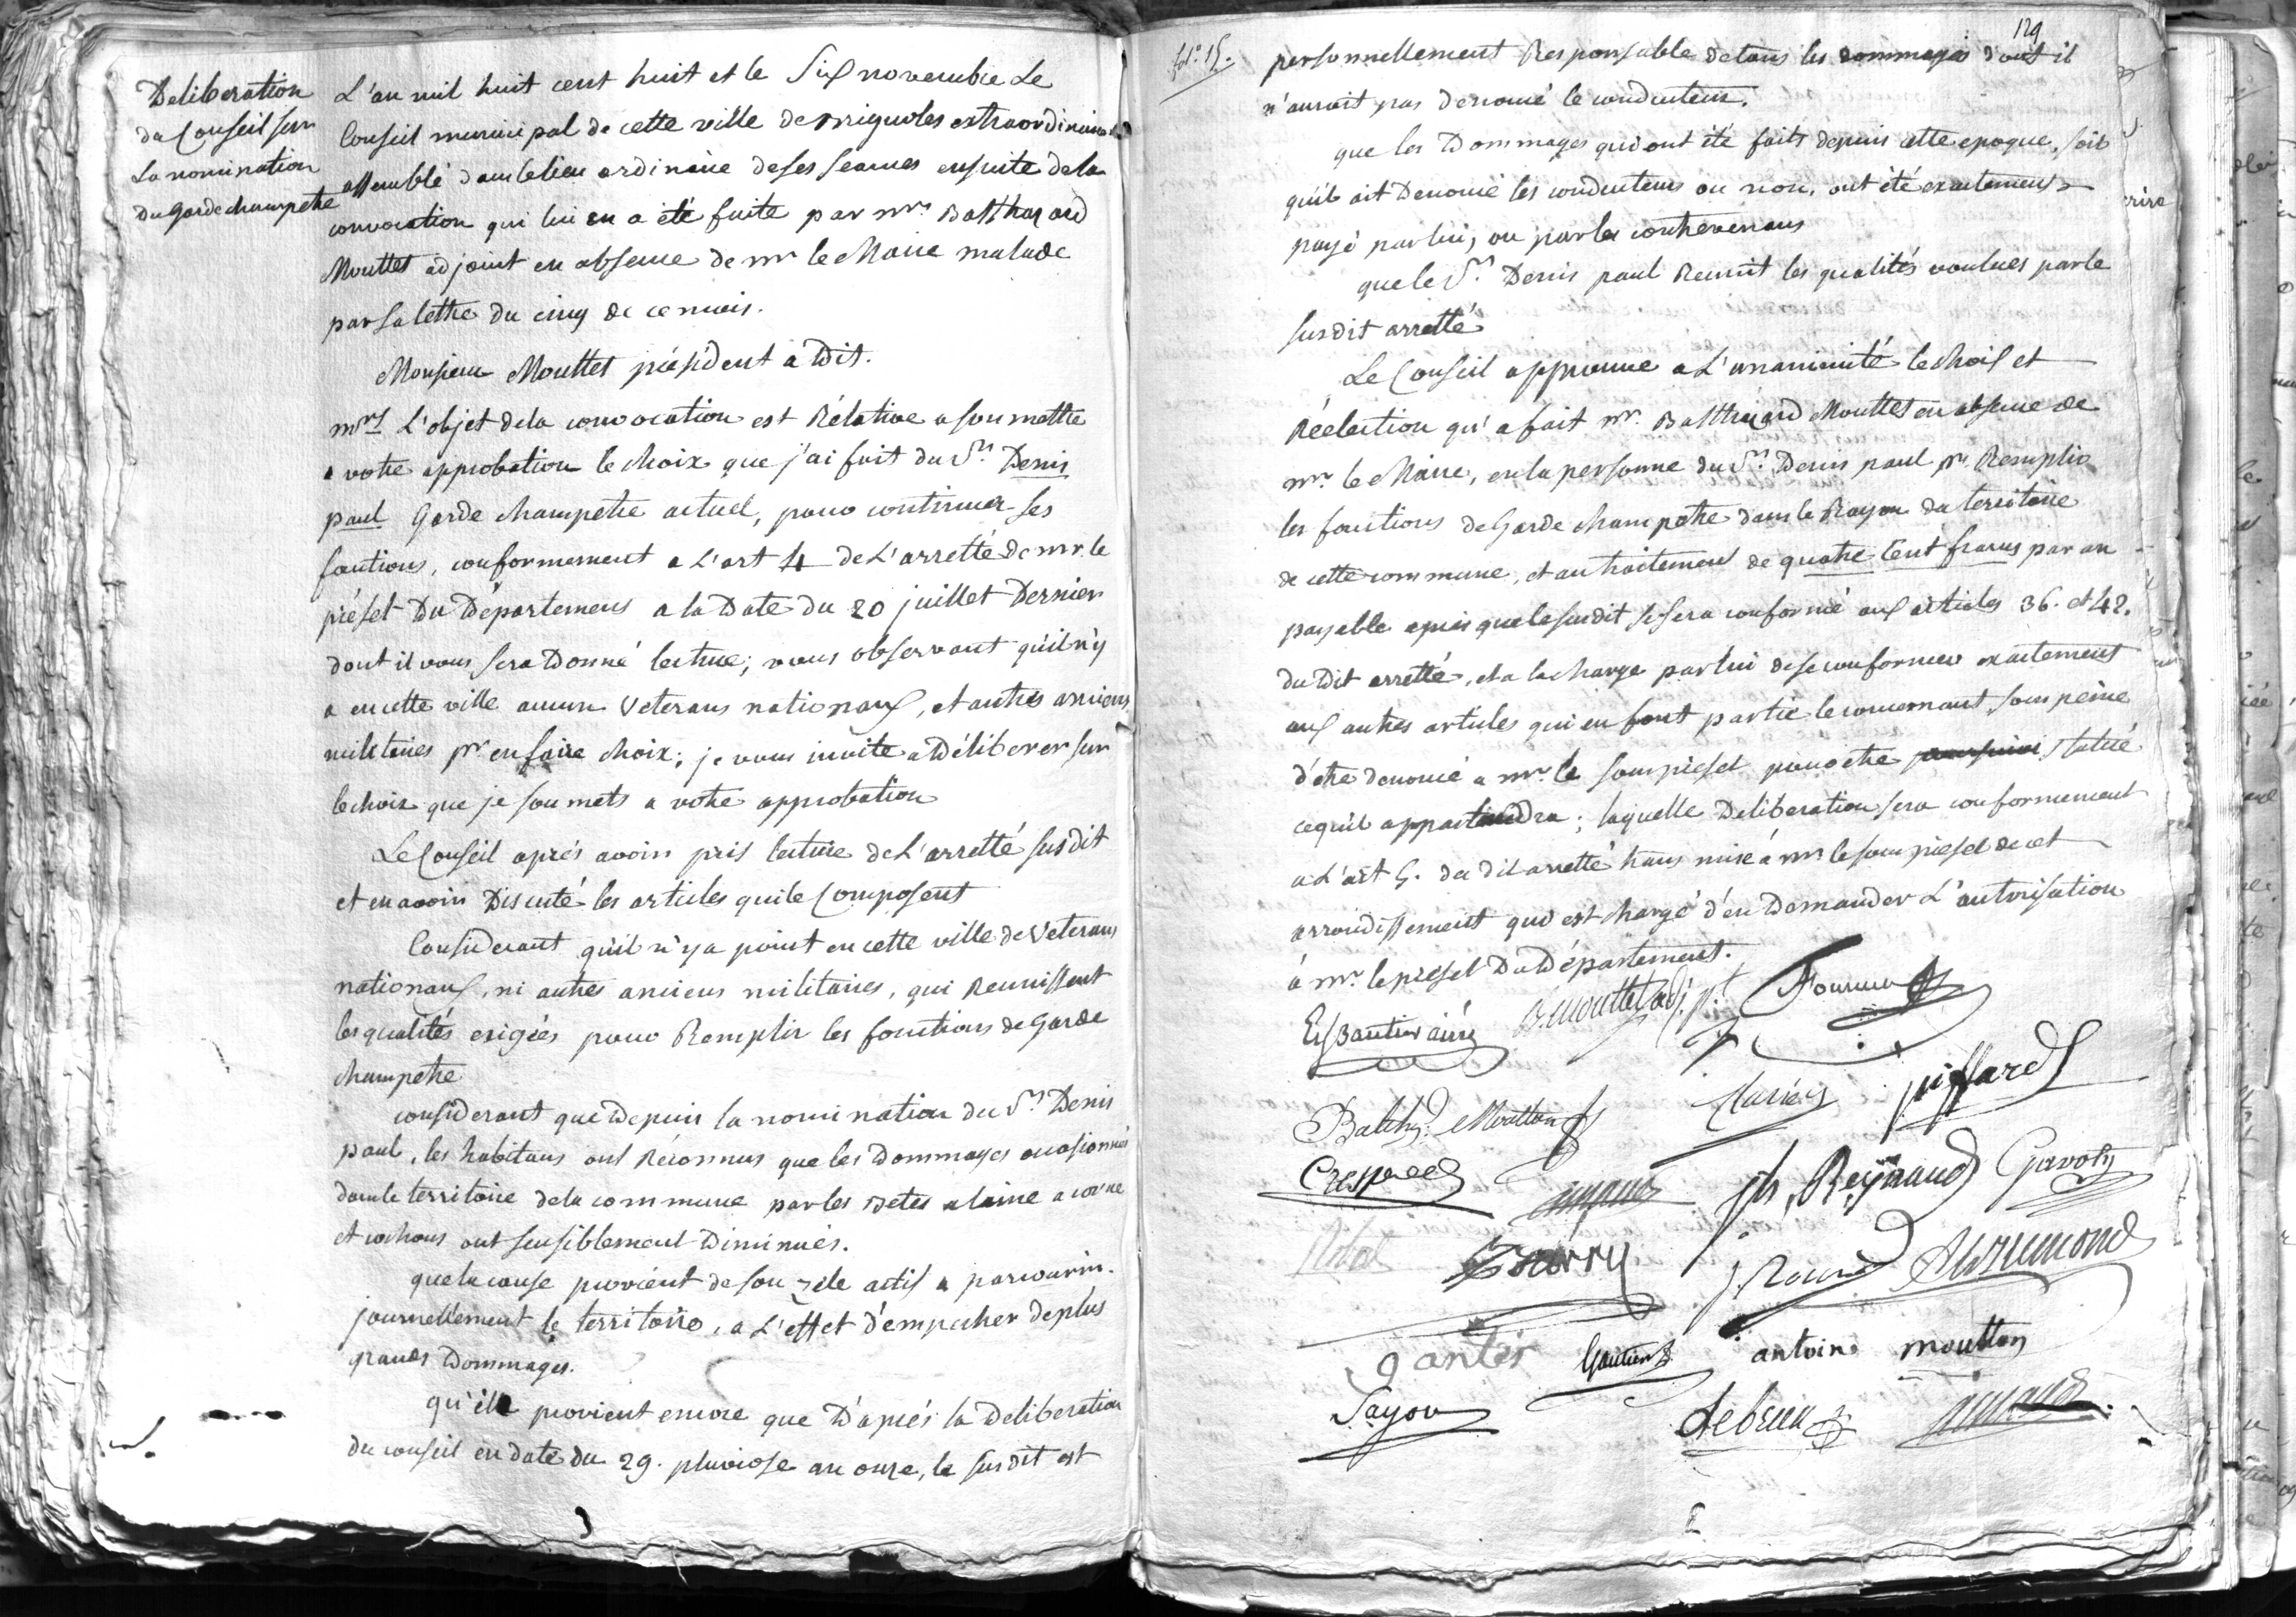 Deliberation
du Conseil sur
La nomination
Du garde champetre
L'an mil huit cent huit et le Six novembre Le
Conseil municipal de cette ville de Brignoles extraordinairement
assemblé dans le lieu ordinaire de ses seances ensuite de la
convocation qui lui en a été faite par mr. Balthazard
Mouttet adjoint en absence de mr le Maire malade
par sa lettre du cinq de ce mois.
Monsieur Mouttet président a Dit.
mrs L'objet de la convocation est Rélative a soumettre
a votre approbation le choix que j'ai fait du Sr. Denis
paul Garde champetre actuel, pour continuer ses
fontions, conformement a L'art 4 de L'arretté de mr. le
préfet Du Département a la Date du 20 juillet Dernier
dont il vous sera Donné lecture; vous observant qu'il n'y
a en cette ville aucun Veterans nationaux, et autres anciens
militaires pr. en faire choix; je vous invite a Déliberer sur
le choix que je soumets a votre approbation
Le Conseil aprés avoir pris lecture de L'arretté susdit
et en avoir Discuté les articles qui le Composent
Considerant qu'il n'y a point en cette ville de Veterans
nationaux, ni autres anciens militaires, qui Reunissent
les qualités exigées pour Remplir les fonctions de Garde
champetre
considerant que Depuis la nomination du Sr. Denis
paul, les habitans ont Réconnus que les Dommages occasionnés
dans le territoire de la commune par les Betes a laine a corne
et cochons ont sensiblement Diminués.
que la cause provient de son zele actif a parcourir
journellement le territoire, a L'effet d'empecher de plus
grands Dommages.
qu'ill provient encore que D'aprés la Deliberation
du conseil en date du 29. pluviose an onze, le susdit est
129
fol. 15.
personnellement Responsable de tous les dommages dont il
n'auroit pas denoncé le conducteur.
que les Dommages qui ont été faits depuis cette epoque, soit
qu'il ait Denoncé les conducteurs ou non, ont été exactement
payé par lui, ou par les contrevenans
que le Sr. Denis paul Reunit les qualités voulues par le
susdit arretté
Le Conseil approuve a L'unanimité le choix et
Réelection qu'a fait mr. Balthazard Mouttet en absence de
mr. le Maire, en la personne du Sr. Denis paul pr. Remplir
les fonctions de Garde champetre dans le Rayon du territoire
de cette commune, et au traitement de quatre Cent francs par an
payable aprés que le susdit se sera conformé aux articles 36. et 42.
du Dit arretté, et a la charge par lui de se conformer exactement
aux autres articles qui en font partie le concernant, sous peine
d'être denoncé a mr. le souspréfet pour etre poursuivi statué
ce qu'il appartiendra; laquelle Deliberation sera conformement
a L'art 5. du dit arretté transmise á mr le sous préfet de cet
arrondissement qui est chargé d'en Demander L'autorisation
á mr. le préfet Du Département.
B. Mouttet adj. pt.
Fournier
Balthd. Moutton
Clariers
piffard
Crespel
jh Reynaud
Gavoty
Ganter
Gautier
antoine moutton
Sayou
Lebrun